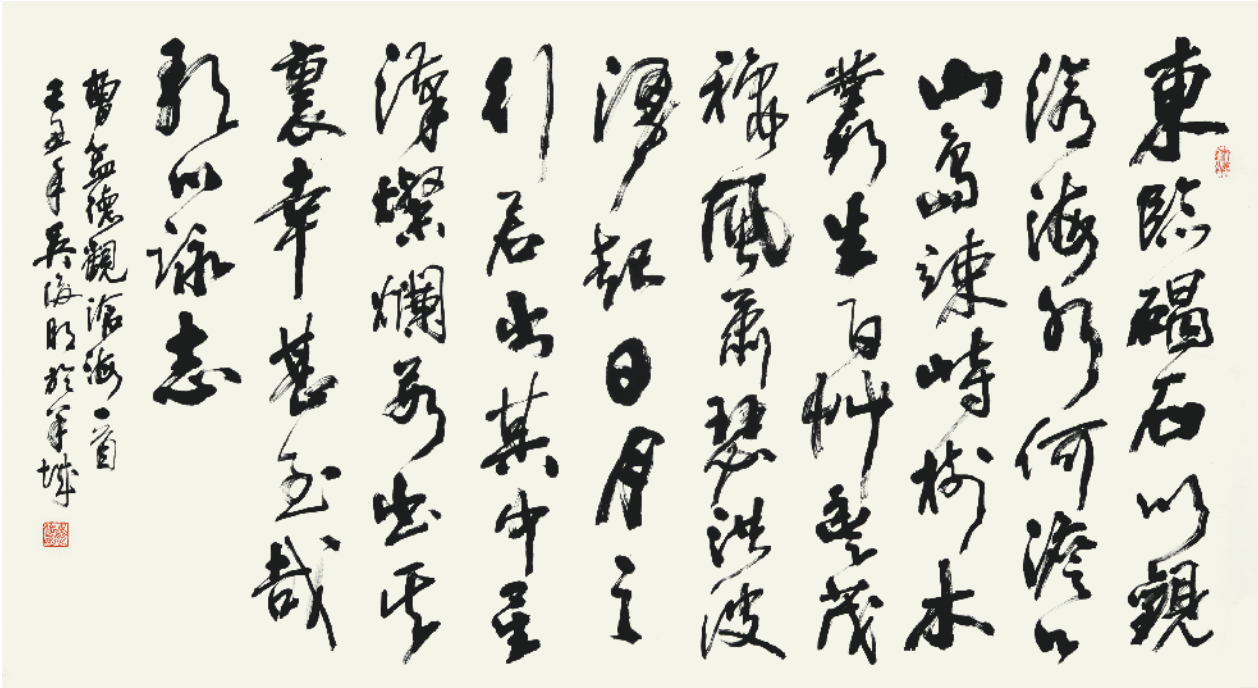 東臨碣石以觀
滄海水何澹々
山島竦峙樹木
叢生百艸豐茂
秋風蕭瑟洪波
湧起日月之
行若出其中星
漢燦爛若出其
裏幸甚至哉
歌以詠志
曹孟德觀滄海一首
己丑年吳海明於羊城